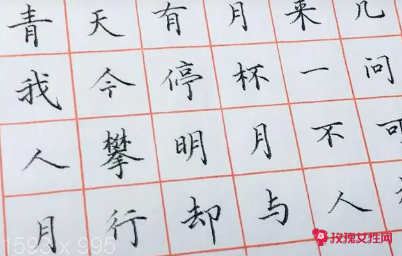 青天有月来几
我今停杯一问
人攀明月不可
月行却与人
1593 x 995
玫瑰女性网